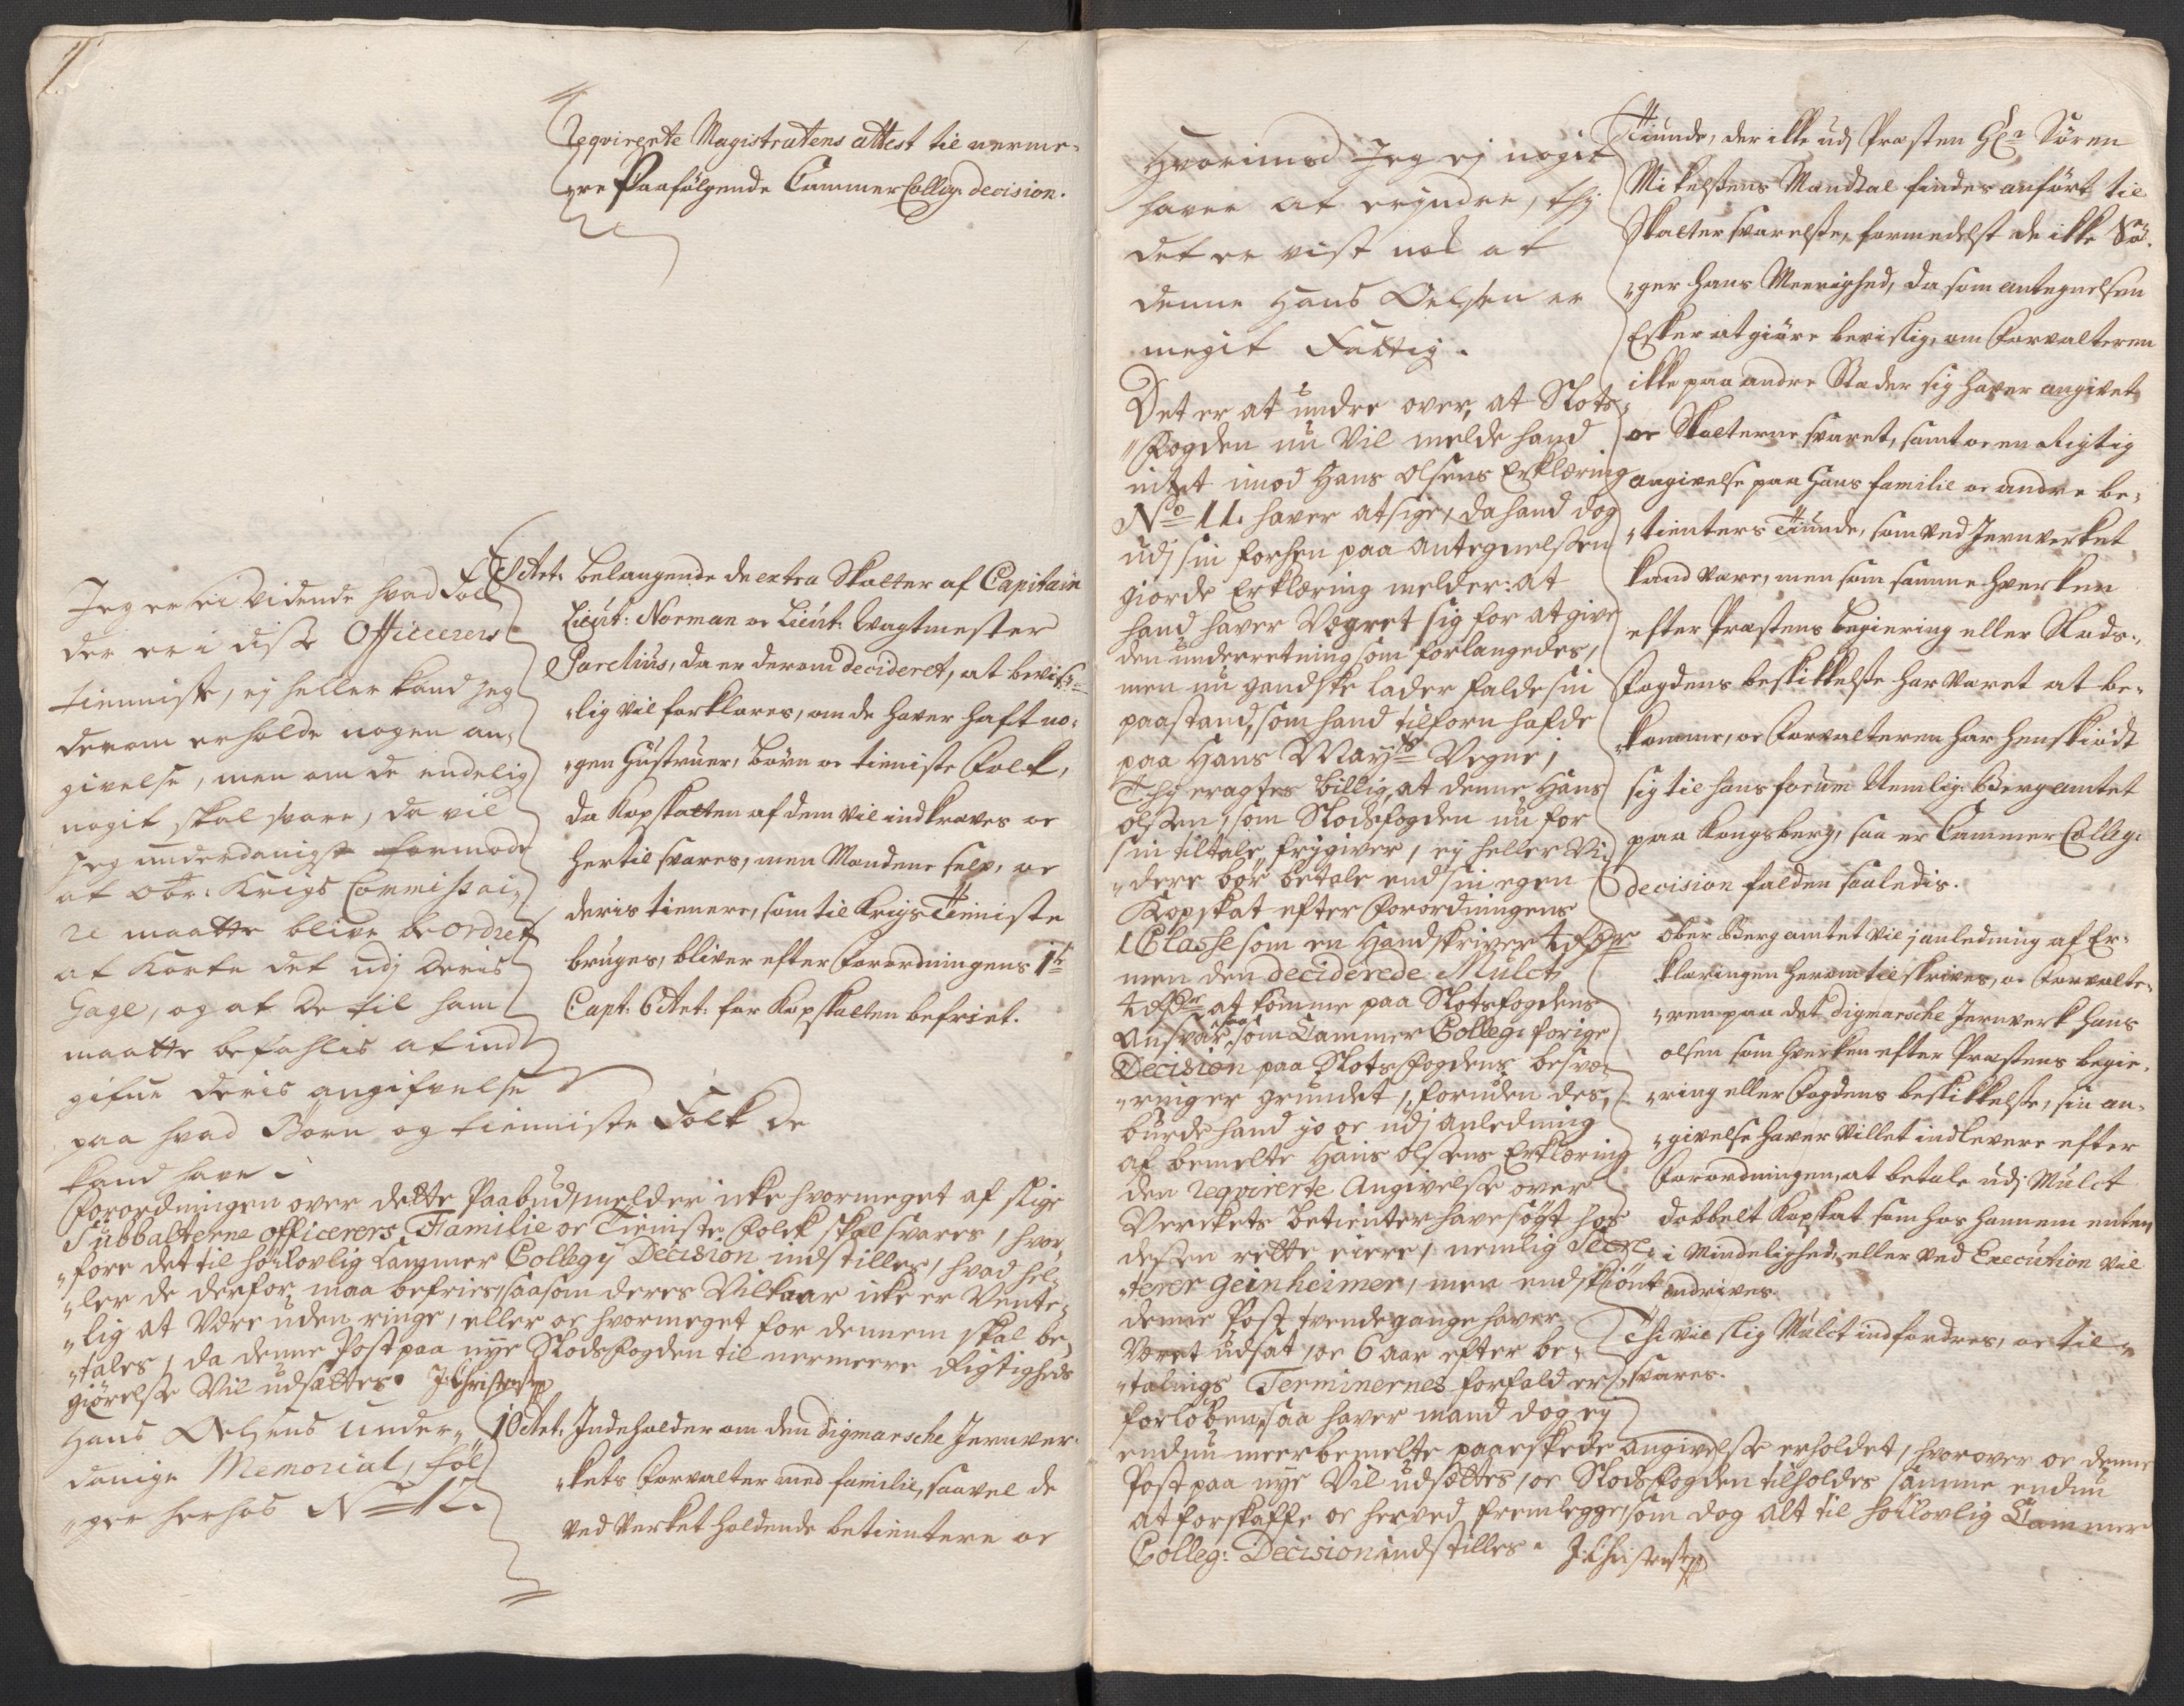 Reqvirerte Magistratens attest til nerme-
„re Paafölgende Cammer Colleg: decision.
Jeg er ei vidende hvad Folk
der er i disse Officerers
tienniste, ej heller kand jeg
derom erholde nogen an-
givelse, men om de endelig
nogit skal svare, da vil
jeg underdanigst formode
at obr: Krigs Commissai-
re maatte blive beordret
at korte det udj Deris
Gage, og at de til ham
maatte befahlis at ind
gifue deris angifvelse
paa hvad Börn og tienniste Folk de
kand have
Belangende de extra Skatter af Capitain
Lieut: Norman oc Lieut: Wagtmester
Parelius, da er derom decideret, at bevis-
„lig vil forklares, om de haver haft no-
„gen Hustruer, börn oc tieniste Folk,
da Kopskatten af dem vil indkræves oc
hertil svares, men Mændene selv, oc
deris tienere, som til Krigs Tieniste
bruges, bliver efter Forordningens 1te
Capt: 6 Art: for Kopskatten befriet.
Forordningen over dette Paabud, melder icke hvormeget af slige
Subbalterne officerers Familie oc Tieniste Folck skal svares, hvor-
„fore det til höilovlig Cammer Collegij Decision indstilles, hvad hel-
„ler de derfor maa befries, saasom deres Vilkaar icke er Vente-
„lig at være uden ringe, eller oc hvormeget for dennem skal be-
„tales, da denne Post paa nye Slodsfogden til nermeere Rigtigheds
giörelse Vil udsættes. J: Christensen
Hans Oelsens under-
danige Memorial, föl-
„ger herhos No 12.
10 Art. Indeholder om den Digmarsche Jernver-
„kets Forvalter med familie, saavel de
ved Verket holdende betientere oc
Hvorimod Jeg ej nogit
haver at erindre, thj
det er vist nok at
denne Hans Oelsen er
megit Fattig.
Det er at undre over, at Slots
„Fogden nu Vil melde hand
intet imod Hans Olsens Erklæring
No 11. haver at sige, da hand dog
udj sin forhen paa Antegnelsen
giorde Erklæring melder: at
hand haver Vægret sig for at give
den underretning som forlangedes,
men nu gandske lader falde sin
paastand, som hand tilforn hafde
paa Hans Mayts Vegne,
Thj eragtes billig, at denne Hans
Olsen, som Slodsfogden nu for
sin tiltale frjgiver, ey heller Vi-
„dere bör betale end sin egen
Kopskat efter Forordningens
1 Classe som en Handskriver 4 rdr
men den deciderede Mulct
4 rdr at komme paa Slotsfogdens
Ansvar, som Cammer Colleg: forige
Decision paa Slotsfogdens besvæ-
„ringer grundet, foruden des,
burde hand jo oc udj Anledning
af bemelte Hans Olsens Erklæring
den reqvirerte Angivelse over
Verckets betienter have sögt hos
dessen rette eiere, nemlig Secre-
„terer Geinheimer, men endskiönt
denne Post tvende gange haver
Været udsat, oc 6 aar efter be-
„talnigs Terminernes forfald er
forlöben, saa haver mand dog ey
endnu meerbemelte paaeskede angivelse erholdet, hvorover oc denne
Post paa nye Vil udsættes, oc Slodsfogden tilholdes samme endnu
at forskaffe oc herved fremlegge, som dog alt til höilovlig Cammer
Colleg: Decision indstilles. J: Christensen
Tiunde, der ikke udj Præsten Hr Sören
Mikelsens Mandtal findes anfört til
Skatter svarelse, formedelst de ikke Sö-
„ger hans Meenighed, da som antegnelsen
Esker at giöre bevislig, om Forvalteren
ikke paa andre Stæder sig haver angivet
oc Skatterne svaret, samt oc en Rigtig
angivelse paa hans familie oc andre be-
„tienters Tiunde, som ved Jernverket
kand være, men som samme hverken
efter Præstens begiering eller Slods-
Fogdens beskikkelse har været at be-
„komme, oc Forvalteren har henskiödt
sig til hans forum Nemlig: Berg amtet
paa Kongsberg, saa er Cammer Colleg:
decision falden saaledis.
Ober Berg amtet vil j anledning af Er-
klæringen herom tilskrives, oc Forvalte-
„ren paa det Digmarsche Jernverk Hans
olsen som hverken efter Præstens begie-
„ring eller Fogdens beskikkelse, sin an-
„givelse haver villet indlevere efter
Forordningen, at betale udj Mulct
dobbelt Kopskat som hos hannem enten
i Mindelighed, eller ved Execution vil
inddrives
Thi vil slig Mulct indfordres, oc til-
„svares.